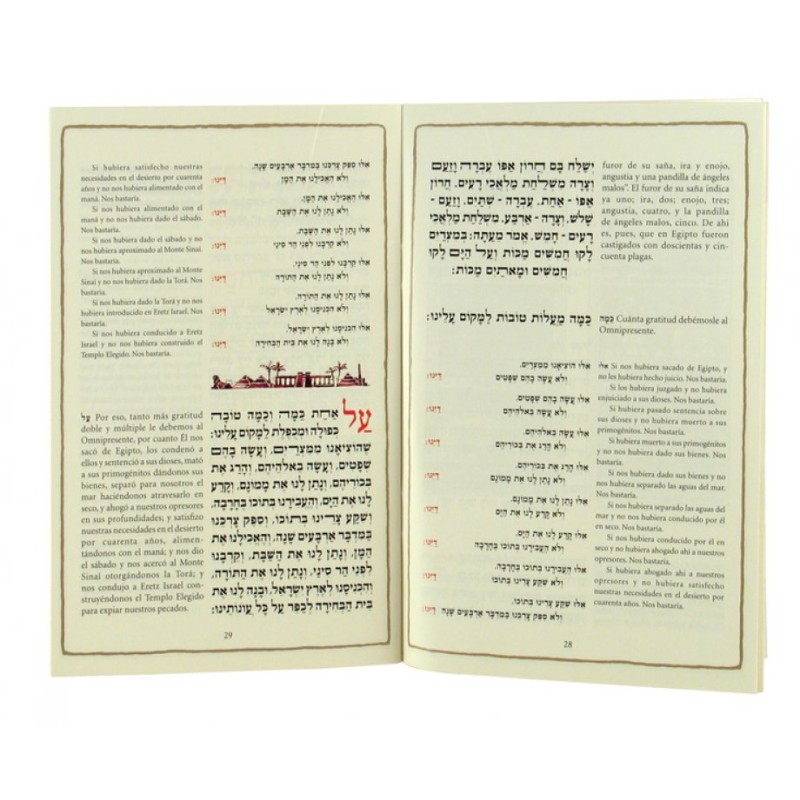 יְשַׁלַּח בָּם חֲרוֹן אַפּוֹ עֶבְרָה וָזַעַם
וְצָרָה מִשְׁלַחַת מַלְאֲכֵי רָעִים. חֲרוֹן
אַפּוֹ - אַחַת. עֶבְרָה - שְׁתַּיִם. וָזַעַם -
שָׁלֹשׁ. וְצָרָה - אַרְבַּע. מִשְׁלַחַת מַלְאֲכֵי
רָעִים - חָמֵשׁ. אֱמֹר מֵעַתָּה: בְּמִצְרַיִם
לָקוּ חֲמִשִּׁים מַכּוֹת וְעַל הַיָּם לָקוּ
חֲמִשִּׁים וּמָאתַיִם מַכּוֹת:
furor de su saña, ira y enojo,
angustia y una pandilla de ángeles
malos". El furor de su saña indica
ya uno; ira, dos; enojo, tres;
angustia, cuatro, y la pandilla
de ángeles malos, cinco. De ahí
es, pues, que en Egipto fueron
castigados con doscientas y cin-
cuenta plagas.
כַּמָּה מַעֲלוֹת טוֹבוֹת לַמָּקוֹם עָלֵינוּ:
כַּמָּה Cuánta gratitud debémosle al
Omnipresente.
אִלּוּ הוֹצִיאָנוּ מִמִּצְרַיִם.
וְלֹא עָשָׂה בָהֶם שְׁפָטִים. דַּיֵּנוּ:
אִלּוּ עָשָׂה בָהֶם שְׁפָטִים.
וְלֹא עָשָׂה בֵאלֹהֵיהֶם. דַּיֵּנוּ:
אִלּוּ עָשָׂה בֵאלֹהֵיהֶם.
וְלֹא הָרַג אֶת בְּכוֹרֵיהֶם. דַּיֵּנוּ:
אִלּוּ הָרַג אֶת בְּכוֹרֵיהֶם.
וְלֹא נָתַן לָנוּ אֶת מָמוֹנָם. דַּיֵּנוּ:
אִלּוּ נָתַן לָנוּ אֶת מָמוֹנָם.
וְלֹא קָרַע לָנוּ אֶת הַיָּם. דַּיֵּנוּ:
אִלּוּ קָרַע לָנוּ אֶת הַיָּם.
וְלֹא הֶעֱבִירָנוּ בְתוֹכוֹ בֶּחָרָבָה. דַּיֵּנוּ:
אִלּוּ הֶעֱבִירָנוּ בְתוֹכוֹ בֶּחָרָבָה.
וְלֹא שִׁקַּע צָרֵינוּ בְּתוֹכוֹ. דַּיֵּנוּ:
אִלּוּ שִׁקַּע צָרֵינוּ בְּתוֹכוֹ.
וְלֹא סִפֵּק צָרְכֵּנוּ בַּמִּדְבָּר אַרְבָּעִים שָׁנָה דַּיֵּנוּ:
אִלּוּ Si nos hubiera sacado de Egipto, y
no les hubiera hecho juicio. Nos bastaría.
Si los hubiera juzgado y no hubiera
enjuiciado a sus dioses. Nos bastaría.
Si hubiera pasado sentencia sobre
sus dioses y no hubiera muerto a sus
primogénitos. Nos bastaría.
Si hubiera muerto a sus primogénitos
y no nos hubiera dado sus bienes. Nos
bastaría.
Si nos hubiera dado sus bienes y no
nos hubiera separado las aguas del mar.
Nos bastaría.
Si nos hubiera separado las aguas
del mar y no nos hubiera conducido por él
en seco. Nos bastaría.
Si nos hubiera conducido por él en
seco y no hubiera ahogado ahí a nuestros
opresores. Nos bastaría.
Si hubiera ahogado ahí a nuestros
opresores y no hubiera satisfecho
nuestras necesidades en el desierto por
cuarenta años. Nos bastaría.
28
אִלּוּ סִפֵּק צָרְכֵּנוּ בַּמִּדְבָּר אַרְבָּעִים שָׁנָה.
וְלֹא הֶאֱכִילָנוּ אֶת הַמָּן. דַּיֵּנוּ:
אִלּוּ הֶאֱכִילָנוּ אֶת הַמָּן.
וְלֹא נָתַן לָנוּ אֶת הַשַּׁבָּת. דַּיֵּנוּ:
אִלּוּ נָתַן לָנוּ אֶת הַשַּׁבָּת.
וְלֹא קֵרְבָנוּ לִפְנֵי הַר סִינַי. דַּיֵּנוּ:
אִלּוּ קֵרְבָנוּ לִפְנֵי הַר סִינַי.
וְלֹא נָתַן לָנוּ אֶת הַתּוֹרָה. דַּיֵּנוּ:
אִלּוּ נָתַן לָנוּ אֶת הַתּוֹרָה.
וְלֹא הִכְנִיסָנוּ לְאֶרֶץ יִשְׂרָאֵל. דַּיֵּנוּ:
אִלּוּ הִכְנִיסָנוּ לְאֶרֶץ יִשְׂרָאֵל.
וְלֹא בָנָה לָנוּ אֶת בֵּית הַבְּחִירָה דַּיֵּנוּ:
Si hubiera satisfecho nuestras
necesidades en el desierto por cuarenta
años y no nos hubiera alimentado con el
maná. Nos bastaría.
Si nos hubiera alimentado con el
maná y no nos hubiera dado el sábado.
Nos bastaría.
Si nos hubiera dado el sábado y no nos
hubiera aproximado al Monte Sinaí.
Nos bastaría.
Si nos hubiera aproximado al Monte
Sinaí y no nos hubiera dado la Torá. Nos
bastaría.
Si nos hubiera dado la Torá y no nos
hubiera introducido en Eretz Israel. Nos
bastaría.
Si nos hubiera conducido a Eretz
Israel y no nos hubiera construido el
Templo Elegido. Nos bastaría.
עַל אַחַת כַּמָּה וְכַמָּה טוֹבָה
כְפוּלָה וּמְכֻפֶּלֶת לַמָּקוֹם עָלֵינוּ:
שֶׁהוֹצִיאָנוּ מִמִּצְרַיִם, וְעָשָׂה בָהֶם
שְׁפָטִים, וְעָשָׂה בֵאלֹהֵיהֶם, וְהָרַג אֶת
בְּכוֹרֵיהֶם, וְנָתַן לָנוּ אֶת מָמוֹנָם, וְקָרַע
לָנוּ אֶת הַיָּם, וְהֶעֱבִירָנוּ בְתוֹכוֹ בֶּחָרָבָה,
וְשִׁקַּע צָרֵינוּ בְּתוֹכוֹ, וְסִפֵּק צָרְכֵּנוּ
בַּמִּדְבָּר אַרְבָּעִים שָׁנָה, וְהֶאֱכִילָנוּ אֶת
הַמָּן, וְנָתַן לָנוּ אֶת הַשַּׁבָּת, וְקֵרְבָנוּ
לִפְנֵי הַר סִינַי, וְנָתַן לָנוּ אֶת הַתּוֹרָה,
וְהִכְנִיסָנוּ לְאֶרֶץ יִשְׂרָאֵל, וּבָנָה לָנוּ אֶת
בֵּית הַבְּחִירָה לְכַפֵּר עַל כָּל עֲוֹנוֹתֵינוּ:
עַל Por eso, tanto más gratitud
doble y múltiple le debemos al
Omnipresente, por cuanto Él nos
sacó de Egipto, los condenó a
ellos y sentenció a sus dioses, mató
a sus primogénitos dándonos sus
bienes, separó para nosotros el
mar haciéndonos atravesarlo en
seco, y ahogó a nuestros opresores
en sus profundidades; y satisfizo
nuestras necesidades en el desierto
por cuarenta años, alimen-
tándonos con el maná; y nos dio
el sábado y nos acercó al Monte
Sinaí otorgándonos la Torá; y
nos condujo a Eretz Israel cons-
truyéndonos el Templo Elegido
para expiar nuestros pecados.
29